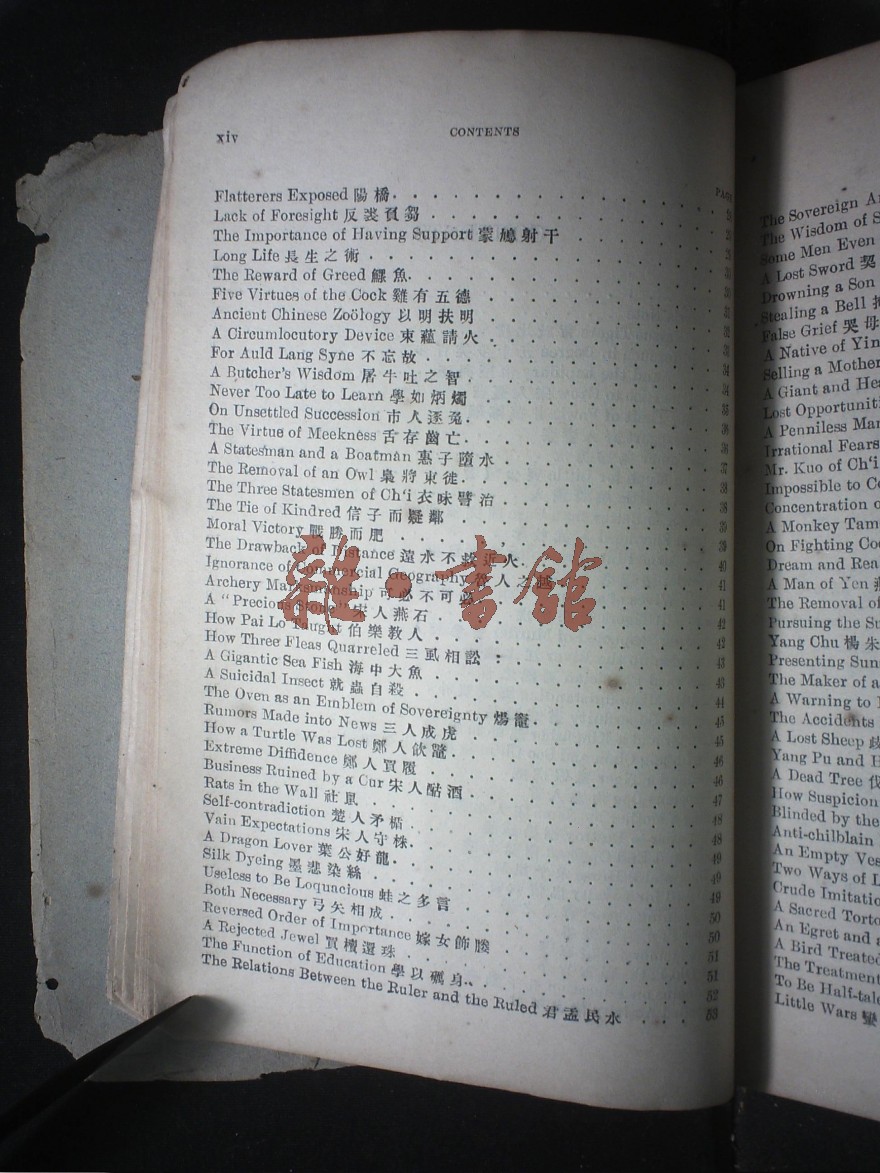 xiv
CONTENTS
PAGE
Flatterers Exposed 陽橋
Lack of Foresight 反裘負芻
The Importance of Having Support 蒙鳩射干
Long Life 長生之術
The Reward of Greed 鰥魚
Five Virtues of the Cock 雞有五德
Ancient Chinese Zoölogy 以明扶明
A Circumlocutory Device 束蘊請火 32
For Auld Lang Syne 不忘故
A Butcher's Wisdom 屠牛吐之智 34
Never Too Late to Learn 學如炳燭 34
On Unsettled Succession 市人逐兔 35
The Virtue of Meekness 舌存齒亡 36
A Statesman and a Boatman 惠子墮水 36
The Removal of an Owl 梟將東徙 37
The Three Statesmen of Ch'i 衣昧譬治 38
The Tie of Kindred 信子而疑鄰 38
Moral Victory 戰勝而肥 39
The Drawback of Distance 遠水不救近火 39
Ignorance of Commercial Geography 人之越 40
Archery Marksmanship 可必不可必 41
A "Precious Stone" 宋人燕石 41
How Pai Lo Taught 伯樂教人 42
How Three Fleas Quarreled 三虱相訟 42
A Gigantic Sea Fish 海中大魚 43
A Suicidal Insect 就蟲自殺 43
The Oven as an Emblem of Sovereignty 煬竈 44
Rumors Made into News 三人成虎 45
How a Turtle Was Lost 鄭人飲鼈 45
Extreme Diffidence 鄭人買履 46
Business Ruined by a Cur 宋人酤酒 46
Rats in the Wall 社鼠 47
Self-contradiction 楚人矛楯 48
Vain Expectations 宋人守株 48
A Dragon Lover 葉公好龍 49
Silk Dyeing 墨悲染絲 49
Useless to Be Loquacious 蛙之多言 49
Both Necessary 弓矢相成 50
Reversed Order of Importance 嫁女飾媵 50
A Rejected Jewel 買櫝還珠 51
The Function of Education 學以礪身 51
The Relations Between the Ruler and the Ruled 君盂民水 53
雜·書館
The Sovereign
The Wisdom of
Some Men Even
A Lost Sword 契
Drowning a Son
Stealing a Bell
False Grief 哭母
A Native of Yin
Selling a Mother
A Giant and
Lost
A Penniless
Irrational Fears
Mr. Kuo of Ch'i
Impossible to
Concentration
A Monkey
On Fighting
Dream and
A Man of Yen
The Removal of
Pursuing the
Yang Chu 楊朱
Presenting
The Maker of a
A Warning to
The Accidents
A Lost Sheep 歧
Yang Pu and
A Dead Tree 伐
How Suspicion
Blinded by the
Anti-chilblain
An Empty
Two Ways of
Crude
A Sacred
An Egret and a
A Bird Treated
The Treatment
To Be
Little Wars 蠻